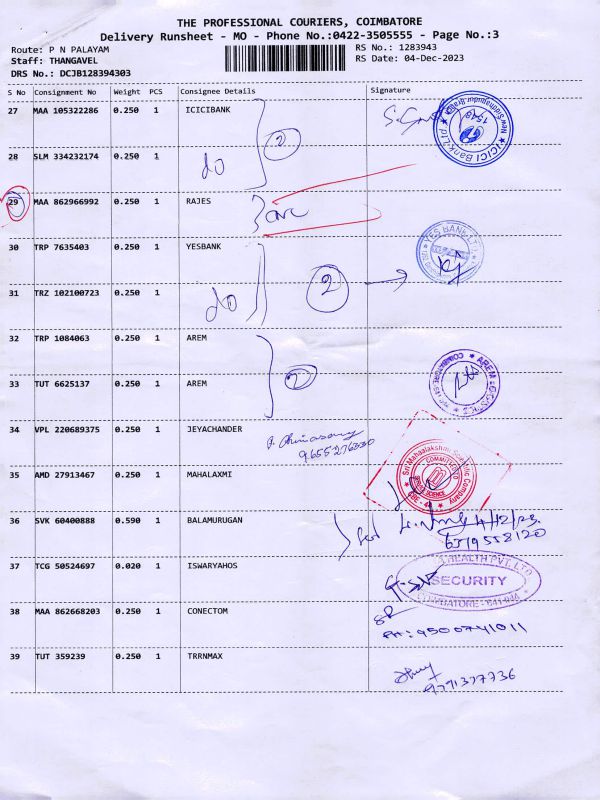 THE PROFESSIONAL COURIERS, COIMBATORE
Delivery Runsheet - MO - Phone No.:0422-3505555 - Page No.:3
Route: P N PALAYAM
RS No.: 1283943
Staff: THANGAVEL
RS Date: 04-Dec-2023
DRS No.: DCJB128394303
S No Consignment No Weight PCS Consignee Details Signature
27 MAA 105322286 0.250 1 ICICIBANK
2
ICICI Bank Ltd
28 SLM 334232174 0.250 1
do
29 MAA 862966992 0.250 1 RAJES
30 TRP 7635403 0.250 1 YESBANK
YES BANK LTD.
31 TRZ 102100723 0.250 1
do 2
32 TRP 1084063 0.250 1 AREM
2
33 TUT 6625137 0.250 1 AREM
34 VPL 220689375 0.250 1 JEYACHANDER
9655276330
35 AMD 27913467 0.250 1 MAHALAXMI
Sri Mahaalakshmi Scientific Company
COMMITTED TO
SCIENCE
36 SVK 60400888 0.590 1 BALAMURUGAN
4/12/23.
6379558120
37 TCG 50524697 0.020 1 ISWARYAHOS
HEALTH PVT. LTD
SECURITY
COIMBATORE
38 MAA 862668203 0.250 1 CONECTOM
PH: 9500741011
39 TUT 359239 0.250 1 TRRNMAX
9791377736